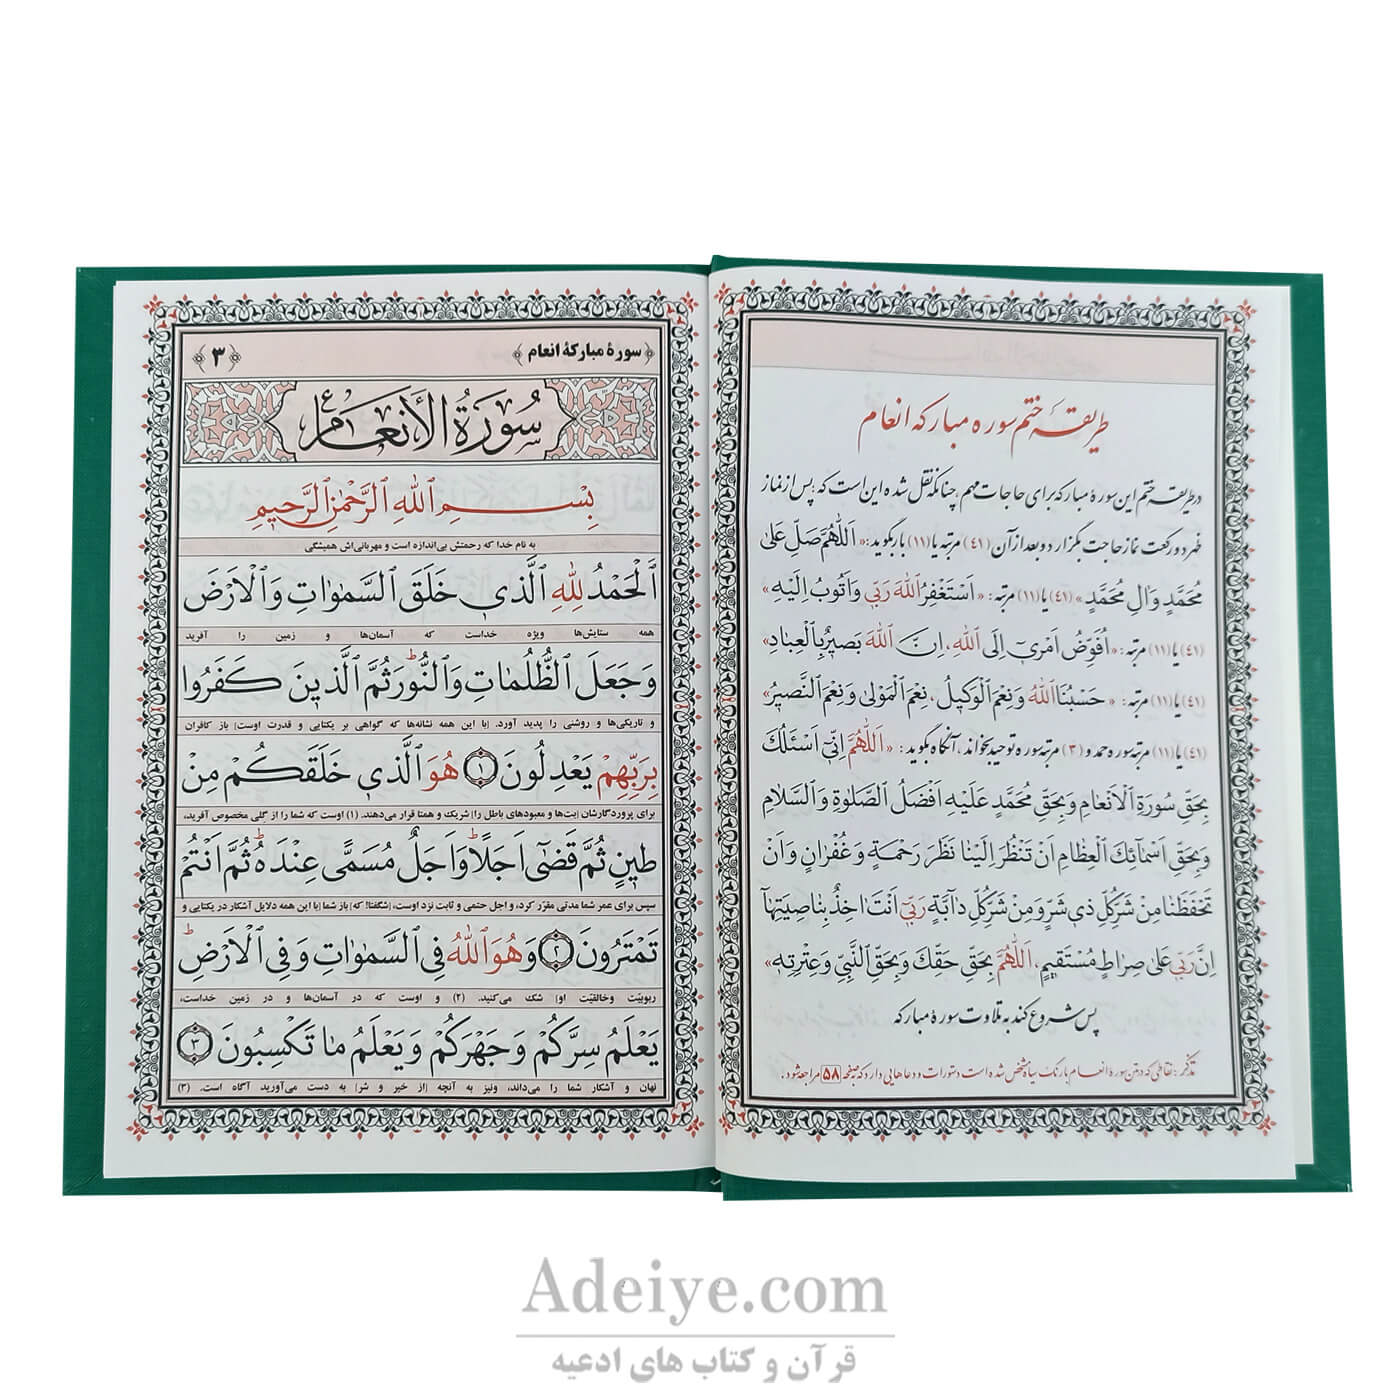 طریقهٔ ختم سوره مبارکه انعام
در طریقه ختم این سورهٔ مبارکه برای حاجات مهم، چنانکه نقل شده این است که: پس از نماز
ظهر دو رکعت نماز حاجت بگزارد و بعد از آن (٤١) مرتبه یا (١١) بار بگوید: «اَللّٰهُمَّ صَلِّ عَلیٰ
مُحَمَّدٍ وَ اٰلِ مُحَمَّدٍ» (٤١) یا (١١) مرتبه: «اَسْتَغْفِرُ اللّٰهَ رَبّی وَ اَتُوبُ اِلَیْهِ»
(٤١) یا (١١) مرتبه: «اُفَوِّضُ اَمْری اِلَی اللّٰهِ، اِنَّ اللّٰهَ بَصیرٌ بِالْعِبادِ»
(٤١) یا (١١) مرتبه: «حَسْبُنَا اللّٰهُ وَ نِعْمَ الْوَکیلُ، نِعْمَ الْمَوْلیٰ وَ نِعْمَ النَّصیرُ»
(٤١) یا (١١) مرتبه سوره حمد و (٣) مرتبه سوره توحید بخواند، آنگاه بگوید: «اَللّٰهُمَّ اِنّی اَسْئَلُکَ
بِحَقِّ سُورَةِ الْاَنْعامِ وَ بِحَقِّ مُحَمَّدٍ عَلَیْهِ اَفْضَلُ الصَّلٰوةِ وَ السَّلامِ
وَ بِحَقِّ اَسْمآئِکَ الْعِظامِ اَنْ تَنْظُرَ اِلَیْنا نَظَرَ رَحْمَةٍ وَ غُفْرانٍ وَ اَنْ
تَحْفَظَنا مِنْ شَرِّ کُلِّ ذی شَرٍّ وَ مِنْ شَرِّ کُلِّ دآبَّةٍ رَبّی اَنْتَ اٰخِذٌ بِناصِیَتِهآ
اِنَّ رَبّی عَلیٰ صِراطٍ مُسْتَقیمٍ، اَللّٰهُمَّ بِحَقِّ حَقِّکَ وَ بِحَقِّ النَّبِیِّ وَ عِتْرَتِهِ»
پس شروع کند به تلاوت سورهٔ مبارکه
تذکر: نقاطی که در متن سورهٔ انعام با رنگ سیاه مشخص شده است دستورات و دعاهایی دارد که به صفحه ٥٨ مراجعه شود.
﴿ سورهٔ مبارکهٔ انعام ﴾ ﴿٣﴾
سُورَةُ الْأَنْعَامِ
بِسْمِ ٱللّٰهِ ٱلرَّحْمٰنِ ٱلرَّحيمِ
به نام خدا که رحمتش بی‌اندازه است و مهربانی‌اش همیشگی
اَلْحَمْدُ لِلّٰهِ ٱلَّذي خَلَقَ ٱلسَّمٰوٰاتِ وَٱلْاَرْضَ
همه ستایش‌ها ویژه خداست که آسمان‌ها و زمین را آفرید
وَ جَعَلَ ٱلظُّلُمٰاتِ وَ ٱلنُّورَ ۖ ثُمَّ ٱلَّذينَ كَفَرُوا
و تاریکی‌ها و روشنی را پدید آورد. [با این همه نشانه‌ها که گواهی بر یکتایی و قدرت اوست] باز کافران
بِرَبِّهِمْ يَعْدِلُونَ ﴿١﴾ هُوَ ٱلَّذي خَلَقَكُمْ مِنْ
برای پروردگارشان [بت‌ها و معبودهای باطل را] شریک و همتا قرار می‌دهند. (١) اوست که شما را از گلی مخصوص آفرید،
طينٍ ثُمَّ قَضىٰٓ اَجَلًا ۖ وَ اَجَلٌ مُسَمًّى عِنْدَهُ ۖ ثُمَّ اَنْتُمْ
سپس برای عمر شما مدتی مقرّر کرد، و اجل حتمی و ثابت نزد اوست، [شگفتا! که] باز شما [با این همه دلایل آشکار در یکتایی و
تَمْتَرُونَ ﴿٢﴾ وَ هُوَ ٱللّٰهُ فِي ٱلسَّمٰوٰاتِ وَ فِي ٱلْاَرْضِ ۖ
ربوبیّت وخالقیّت او] شک می‌کنید. (٢) و اوست که در آسمان‌ها و در زمین خداست،
يَعْلَمُ سِرَّكُمْ وَ جَهْرَكُمْ وَ يَعْلَمُ مٰا تَكْسِبُونَ ﴿٣﴾
نهان و آشکار شما را می‌داند، ونیز به آنچه [از خیر و شر] به دست می‌آورید آگاه است. (٣)
Adeiye.com
قرآن و کتاب های ادعیه